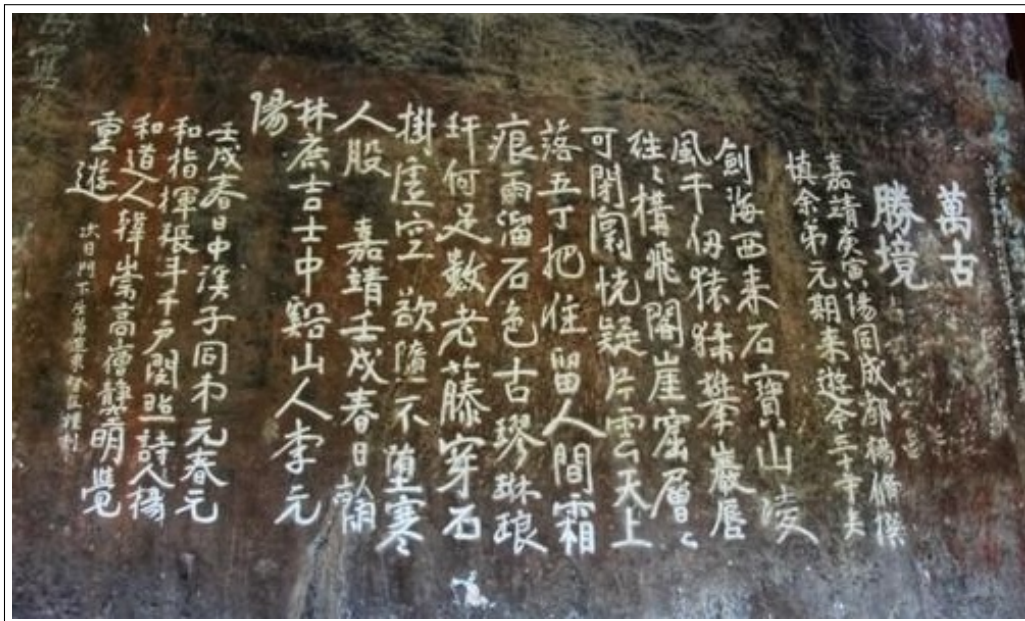 萬古
勝境
嘉靖庚寅陽同成都楊脩撰
慎余弟元期来遊今三十年矣
劍海西来石寶山凌
風千仞猿猱攀巖唇
往〻構飛閣崖窟層〻
可閉關恍疑片雲天上
落五丁把住留人間霜
痕雨溜石色古璆琳琅
玕何足數老藤穿石
掛虛空欲隨不堕寒
人股 嘉靖壬戌春日翰
林庶吉士中谿山人李元
陽
壬戌春日中溪子同弟元春元
和指揮張斗千戶閔照詩人楊
和道人韓崇高僧靜明覺
重遊